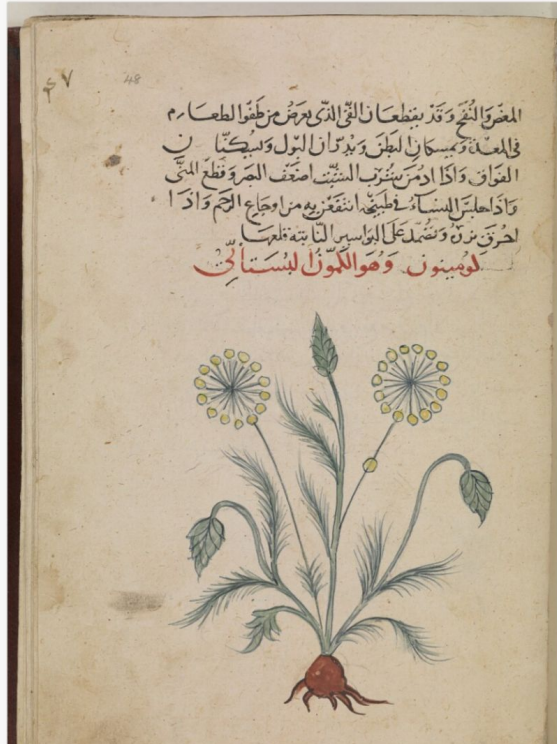 ٤٧
48
المغص والنفخ وقد يقطعان القئ الذى يعرض من طفوا الطعام
فى المعدة ويمسكان البطن ويدران البول ويسكنان
الفواق واذا ادمن شرب الشبث اضعف البصر وقطع المنى
واذا جلس النساء فى طبيخه انتفعن به من اوجاع الرحم واذا
احرق بزره وتضمد على البواسير الناتيه قلعها
كومينون وهو الكمون البستانى